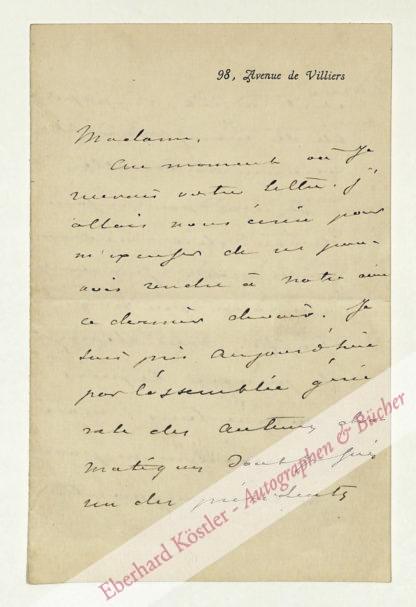 98, Avenue de Villiers
Madame,
Au moment où je
recevais votre lettre. j'
allais vous écrire pour
m'excuser de ne pou-
voir rendre à notre ami
ce dernier devoir. Je
suis pris aujourd'hui
par l'assemblée géné
rale des auteurs dra
matiques dont je suis
un des présidents
Eberhard Köstler - Autographen & Bücher